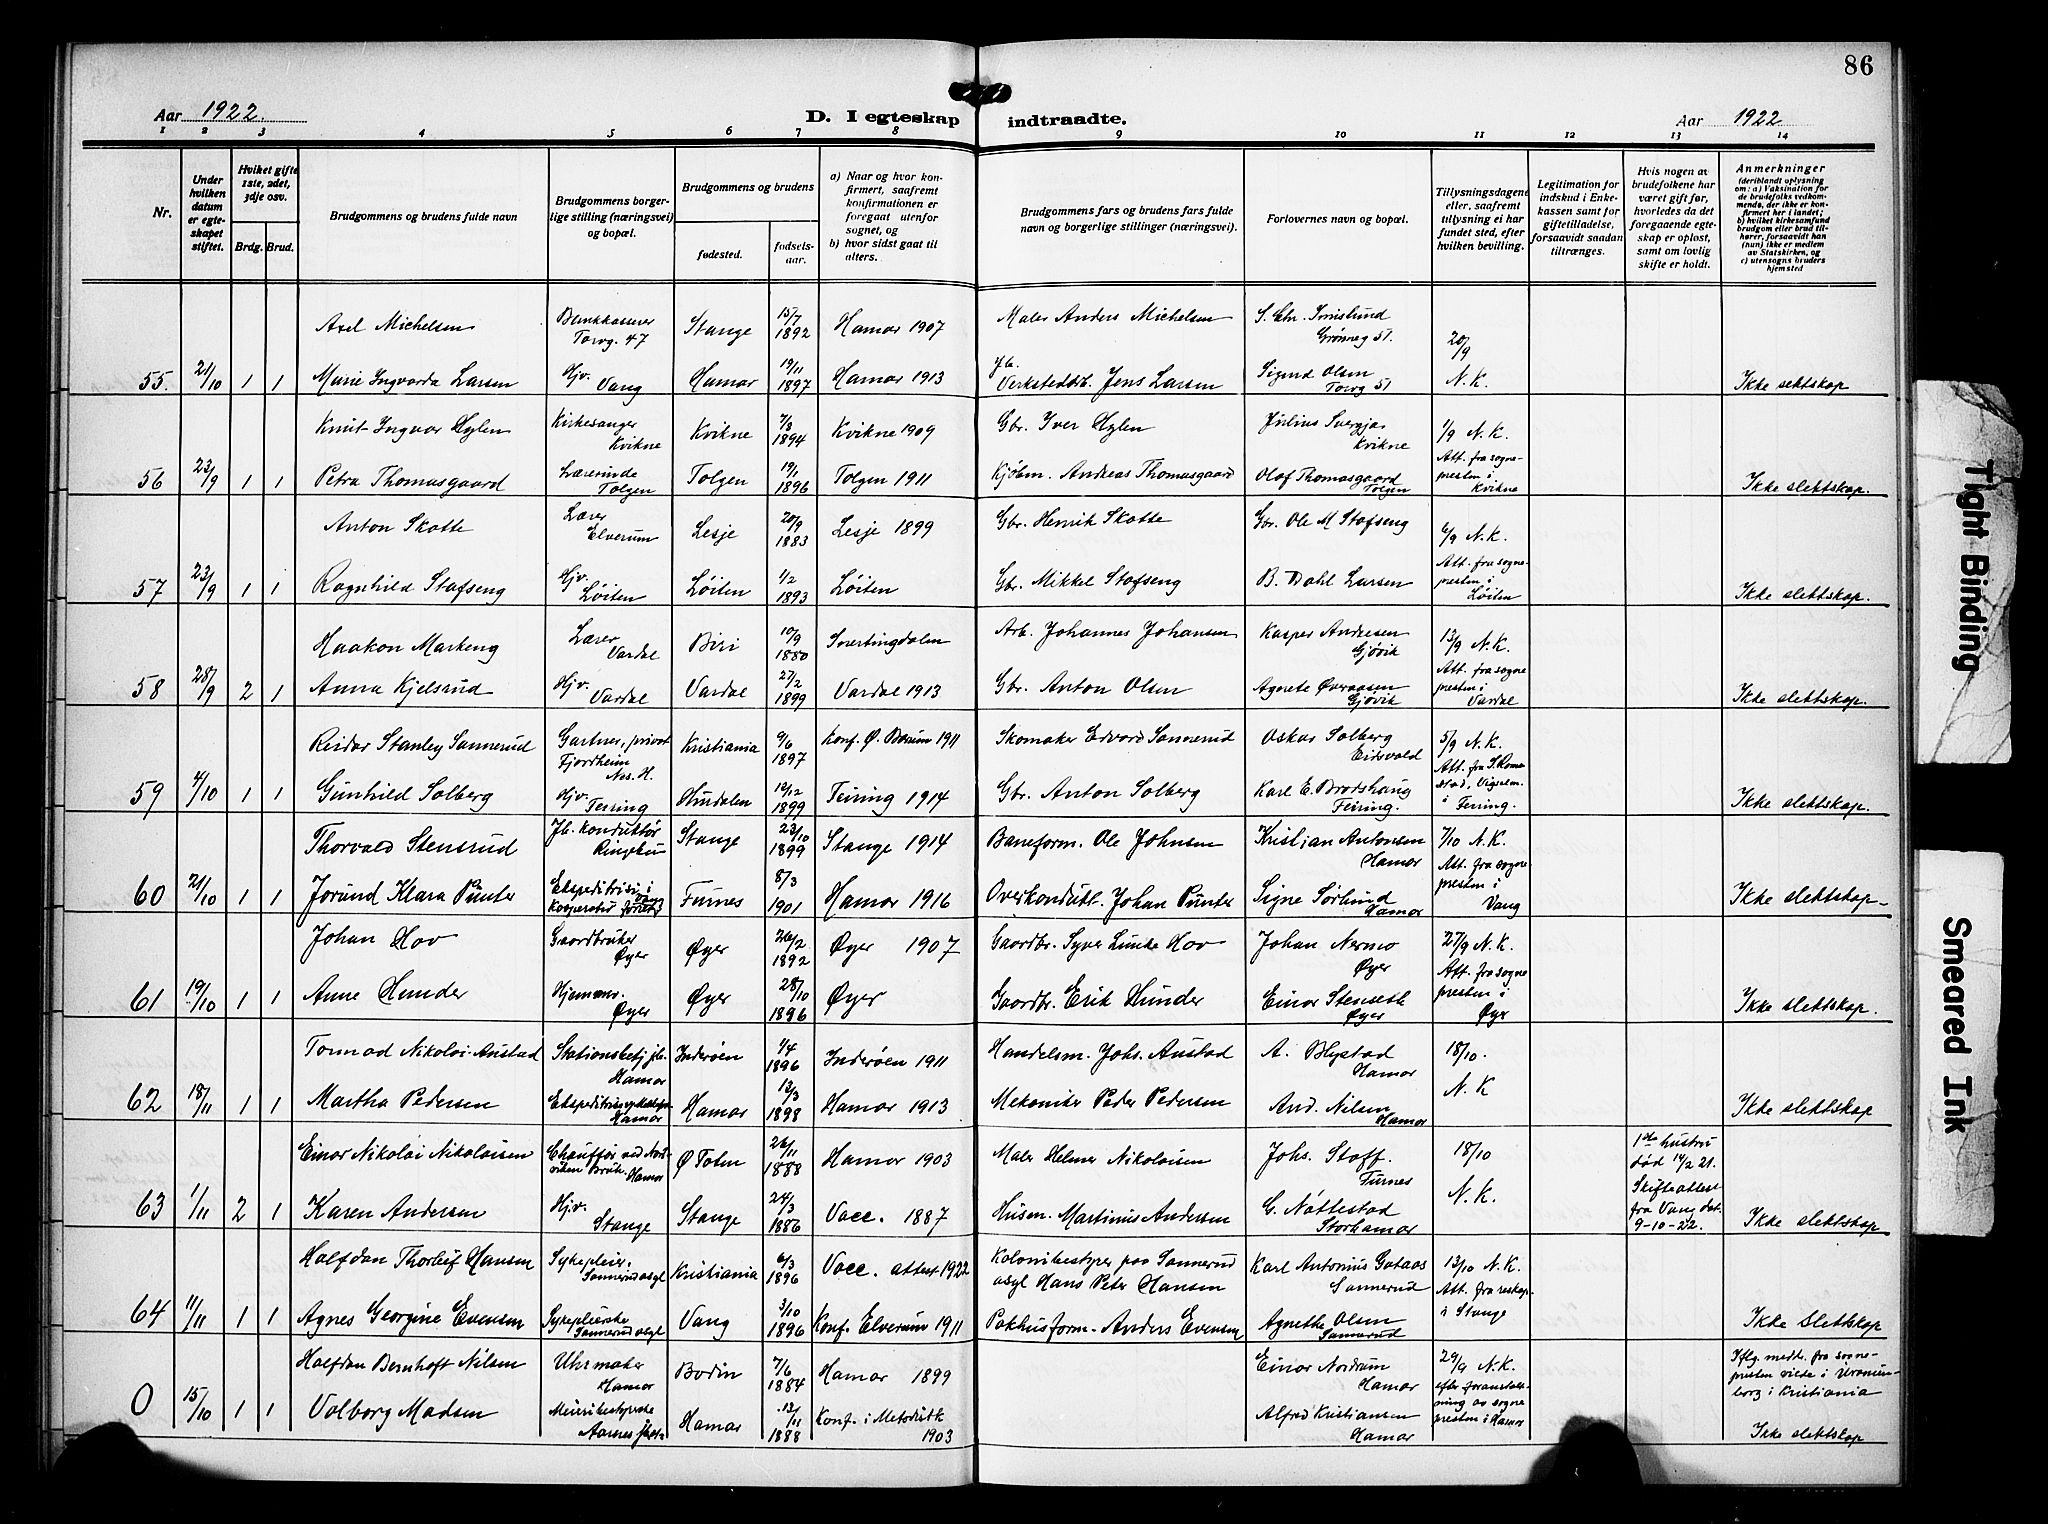 86
Aar 1922.
D. I egteskap indtraadte.
Aar 1922
1 2 3 4 5 6 7 8 9 10 11 12 13 14
Nr.
Under hvilken datum er egteskapet stiftet.
Hvilket gifte 1ste, 2det, 3dje osv.
Brdg. Brud.
Brudgommens og brudens fulde navn
Brudgommens borgerlige stilling (næringsvei) og bopæl.
Brudgommens og brudens
fødested.
fødselsaar.
a) Naar og hvor konfirmert, saafremt konfirmationen er foregaat utenfor sognet, og
b) hvor sidst gaat til alters.
Brudgommens fars og brudens fars fulde navn og borgerlige stillinger (næringsvei).
Forlovernes navn og bopæl.
Tillysningsdagene eller, saafremt tillysning ei har fundet sted, efter hvilken bevilling.
Legitimation for indskud i Enkekassen samt for giftetilladelse, forsaavidt saadan tiltrænges.
Hvis nogen av brudefolkene har været gift før, hvorledes da det foregaaende egteskap er opløst, samt om lovlig skifte er holdt.
Anmerkninger
(deriblandt oplysning om: a) Vaksination for de brudefolks vedkommende, der ikke er konfirmert her i landet; b) hvilket kirkesamfund brudgom eller brud tilhører, forsaavidt han (hun) ikke er medlem av Statskirken, og c) utensogns bruders hjemsted
Axel Michelsen Bankkasserer Torvg. 47 Stange 15/7 1892 Hamar 1907 Maler Anders Michelsen S. Chr. Imislund Grønneg 51. 20/9
55. 21/10 1 1 Marie Ingvarda Larsen Hjv. Vang Hamar 19/11 1897 Hamar 1913 Jb. Verkstedarb. Jens Larsen Sigurd Olsen Torvg 51 N.K. Ikke sektskap
Knut Ingvar Hylen Kirkesanger Kvikne Kvikne 7/3 1894 Kvikne 1909 Gbr. Iver Hylen Julius Kvikne 1/9 N.K.
56 23/9 1 1 Petra Thomasgaard Lærerinde Tolgen Tolgen 19/1 1896 Tolgen 1911 Kjøbm. Andreas Thomasgaard Olaf Thomasgaard Tolgen Att. fra sognepresten i Kvikne Ikke slektskap.
Anton Skotte Lærer Elverum Lesje 20/9 1883 Lesje 1899 Gbr. Henrik Skotte Gbr. Ole M Stafseng 6/9 N.K.
57 23/9 1 1 Ragnhild Stafseng Hjv. Løiten Løiten 1/2 1893 Løiten Gbr. Mikkel Stafseng B. Dahl Larsen Att. fra sognepresten i Løiten Ikke slektskap.
Haakon Markeng Lærer Vardal Biri 10/9 1880 Snertingdalen Arb. Johannes Johansen Kasper Andresen Gjøvik 13/9 N.K.
58 28/9 2 1 Anna Kjelsrud Hjv. Vardal Vardal 27/2 1899 Vardal 1913 Gbr. Anton Olsen Agnete Øveraasen Gjøvik Att. fra sognepresten i Vardal Ikke slektskap.
Reidar Stanley Sannerud Gartner, privat Fjordheim Nes. H. Kristiania 9/6 1897 Konf. Ø. Bærum 1911 Skomaker Edvard Sannerud Oskar Solberg Eidsvold 5/9 N.K.
59 4/10 1 1 Gunhild Solberg Hjv. Feiring Hurdalen 10/12 1899 Feiring 1914 Gbr. Anton Solberg Karl E. Brodshaug Feiring. Att. fra S. Romestad, Vigselm. i Feiring. Ikke slektskap.
Thorvald Stensrud Jb. konduktør Ringebu Stange 23/10 1899 Stange 1914 Baneform. Ole Johnsen Kristian Antonsen Hamar 7/10 N.K.
60 21/10 1 1 Jorund Klara Punter Ekspeditrise i Furnes 8/3 1901 Hamar 1916 Overkondukt. Johan Punter Signe Sørlund Hamar Att. fra sognepresten i Vang Ikke slektskap
Johan Hov Gaardbruker Øyer Øyer 26/2 1892 Øyer 1907 Gaardbr. Syver Lunke Hov Johan Nermo Øyer 27/9 N.K.
61 19/10 1 1 Anne Hunder Hjemmev. Øyer Øyer 28/10 1896 Øyer Gaardbr. Erik Hunder Einar Stenseth Øyer Att. fra sognepresten i Øyr Ikke slektskap.
Tormod Nikolai Austad Stationsbetj. jb. Hamar Inderøen 1/4 1896 Inderøen 1911 Handelsm. Johs. Austad A. Blystad Hamar 18/10.
62 18/11 1 1 Martha Pedersen Hamar Hamar 13/3 1898 Hamar 1913 Mekaniker Peder Pedersen And. Nilsen Hamar N.K Ikke slektskap
Einar Nikolai Nikolaisen Chauffør ved Hamar Ø Toten 26/11 1888 Hamar 1903 Maler Helmer Nikolaisen Johs. Staff. Furnes 18/10 1ste hustru død 14/2 21.
63 1/11 2 1 Karen Andersen Hjv. Stange Stange 24/3 1886 Vacc. 1887 Husm. Martinus Andersen G. Nøttestad Storhamar N.K. Skifteattest fra Vang dat. 9-10-22. Ikke slektskap
Halfdan Thorleif Hansen Sykepleier, Sannerud asyl Kristiania 6/3 1896 Vacc. attest 1922 Kolonibestyrer paa Sannerud asyl Hans Peter Hansen Karl Antonius Gataas Sannerud 13/10 N.K.
64 11/11 1 1 Agnes Georgine Evensen Sykepleierske Sannerud asyl Vang 3/10 1896 Konf. Elverum 1911 Pakhusform. Anders Evensen Agnethe Olsen Sannerud Att. fra reskap. i Stange Ikke Slektskap
Halfdan Bernhoft Nilsen Uhrmaker Hamar Bodin 7/6 1884 Hamar 1899 Einar Nordrum Hamar 29/9 N.K. Iflg. medd. fra sognepresten viede i Uranienborg i Kristiania
0 15/10 1 1 Valborg Madsen Meieribestyrerske Hamar 13/11 1888 Konf. i Metodistk 1903 Alfred Kristiansen Hamar efter foranstaltning av sognepresten i Hamar Ikke slektskap
Tight Binding
Smeared Ink